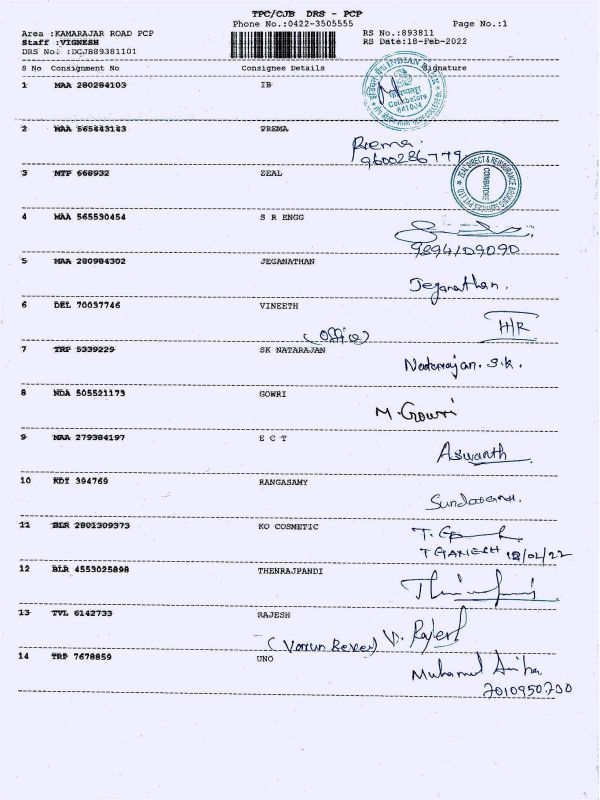 TPC/CJB DRS - PCP
Phone No.:0422-3505555
Page No.:1
Area :KAMARAJAR ROAD PCP
RS No.:893811
Staff :VIGNESH
RS Date:18-Feb-2022
DRS No. :DCJB89381101
S No Consignment No Consignee Details Signature
1 MAA 280284103 IB
INDIAN BANK
Coimbatore
641004
2 MAA 565443143 PREMA
Prema
9600286779
3 MTP 668932 ZEAL
COIMBATORE
4 MAA 565530454 S R ENGG
9894109090
5 MAA 280984302 JEGANATHAN
Jeganathan.
6 DEL 70037746 VINEETH
(Office) H/R
7 TRP 5339229 SK NATARAJAN
Natarajan. S.K.
8 NDA 505521173 GOWRI
M. Gowri
9 MAA 279384197 E C T
Aswanth
10 KDI 394769 RANGASAMY
11 BLR 2801309373 KO COSMETIC
T GANESH 18/02/22
12 BLR 4553025898 THENRAJPANDI
13 TVL 6142733 RAJESH
V. Rajesh
14 TRP 7678859 UNO
7010950700